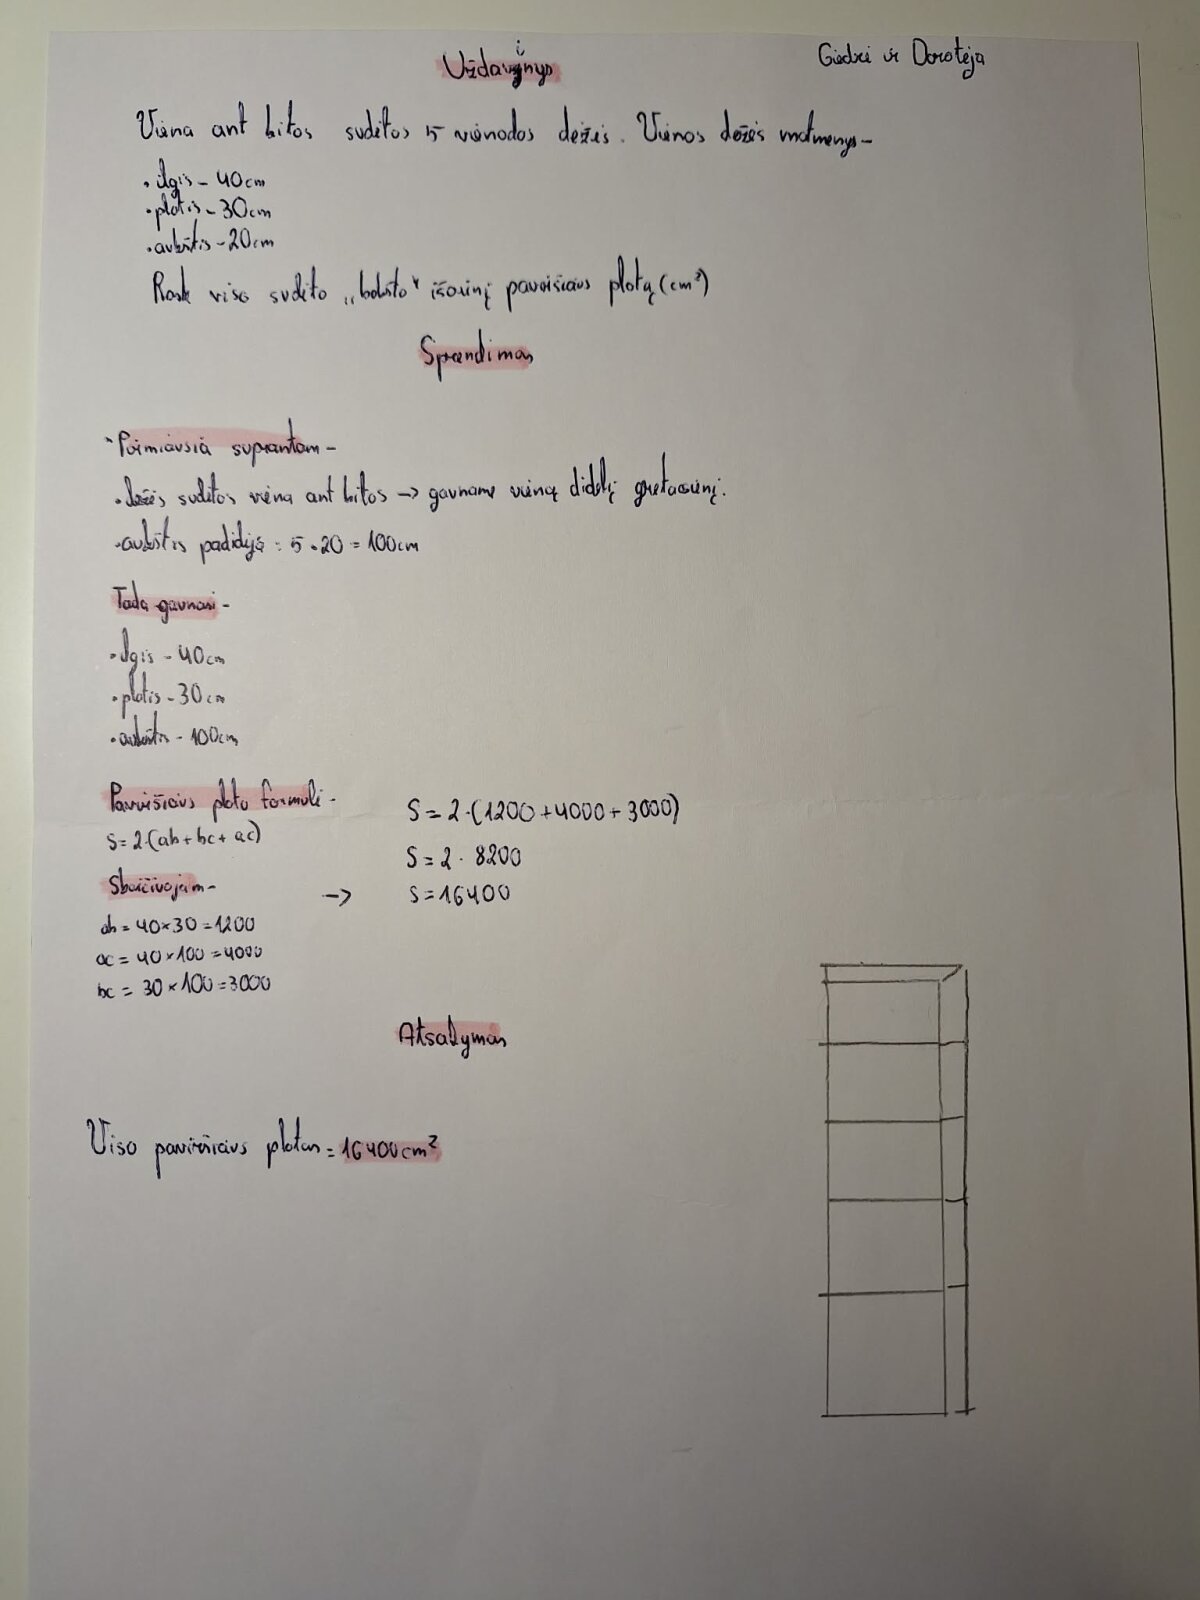 Uždavinys
Giedrė ir Dorotėja
Viena ant kitos sudėtos 5 vienodos dėžės. Vienos dėžės matmenys-
• ilgis - 40cm
• plotis - 30cm
• aukštis - 20cm
Rask viso sudėto „bokšto“ išorinį paviršiaus plotą (cm²)
Sprendimas
Pirmiausia suprantam -
• dėžės sudėtos viena ant kitos -> gauname vieną didelį gretasienį.
• aukštis padidėja = 5 • 20 = 100cm
Tada gaunasi -
• ilgis - 40cm
• plotis - 30cm
• aukštis - 100cm
Paviršiaus ploto formulė -
S = 2·(ab + bc + ac)
Skaičiuojam -
ab = 40×30 = 1200
ac = 40×100 = 4000
bc = 30×100 = 3000
->
S = 2·(1200 + 4000 + 3000)
S = 2 · 8200
S = 16400
Atsakymas
Viso paviršiaus plotas = 16400cm²